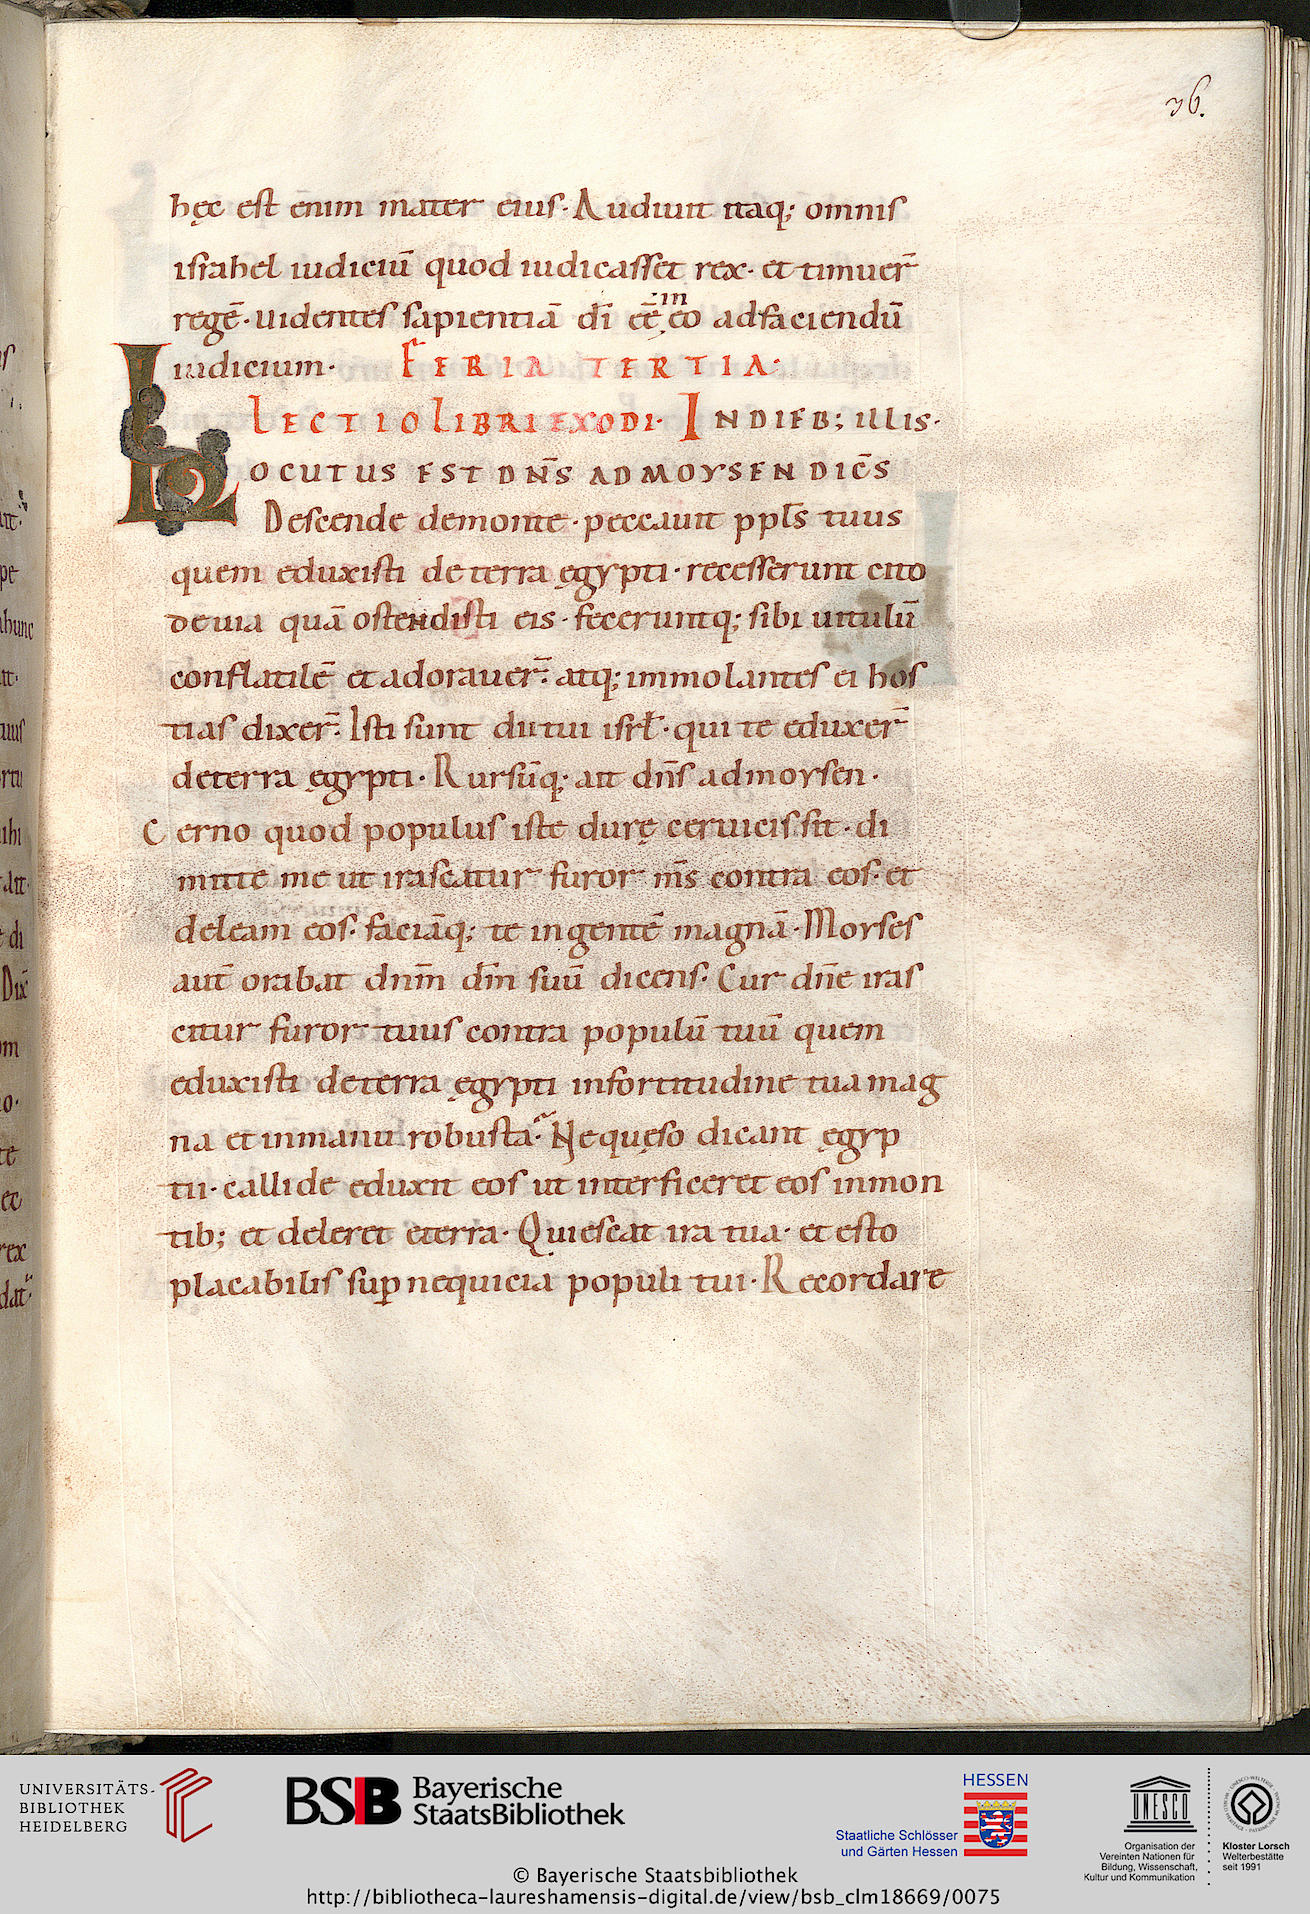 36.
hęc est enim mater eius· Audiuit itaq; omnis
israhel iudiciū quod iudicasset rex· et timuer̄
regē· uidentes sapientiā dī eē ineo adfaciendū
iudicium· FERIA TERTIA·
LECTIO LIBRI EXODI· INDIEB; ILLIS·
LOCUTUS EST DN̄S ADMOYSEN DICĒS
Descende demonte· peccauit ppl̄s tuus
quem eduxisti deterra ęgypti· recesserunt cito
deuia quā ostendisti eis· feceruntq; sibi uitulū
conflatilē et adorauer̄· atq; immolantes ei hos
tias dixer̄· Isti sunt dii tui isrl̄· qui te eduxer̄
deterra ęgypti· Rursūq; ait dn̄s admoysen·
Cerno quod populus iste durę ceruicis sit· di
mitte me ut irascatur furor m̄s contra eos· et
deleam eos· faciāq; te ingentē magnā· Moyses
aut̄ orabat dnm̄ dm̄ suū dicens· Cur dn̄e iras
citur furor tuus contra populū tuū quem
eduxisti deterra ęgypti infortitudine tua mag
na et inmanu robusta· Ne quęso dicant ęgyp
tii· callide eduxit eos ut interficeret eos inmon
tib; et deleret eterra· Quiescat ira tua· et esto
placabilis sup nequicia populi tui· Recordare
UNIVERSITÄTS-
BIBLIOTHEK
HEIDELBERG
BSB Bayerische
StaatsBibliothek
HESSEN
Staatliche Schlösser
und Gärten Hessen
UNESCO
Organisation der
Vereinten Nationen für
Bildung, Wissenschaft,
Kultur und Kommunikation
Kloster Lorsch
Welterbestätte
seit 1991
© Bayerische Staatsbibliothek
http://bibliotheca-laureshamensis-digital.de/view/bsb_clm18669/0075